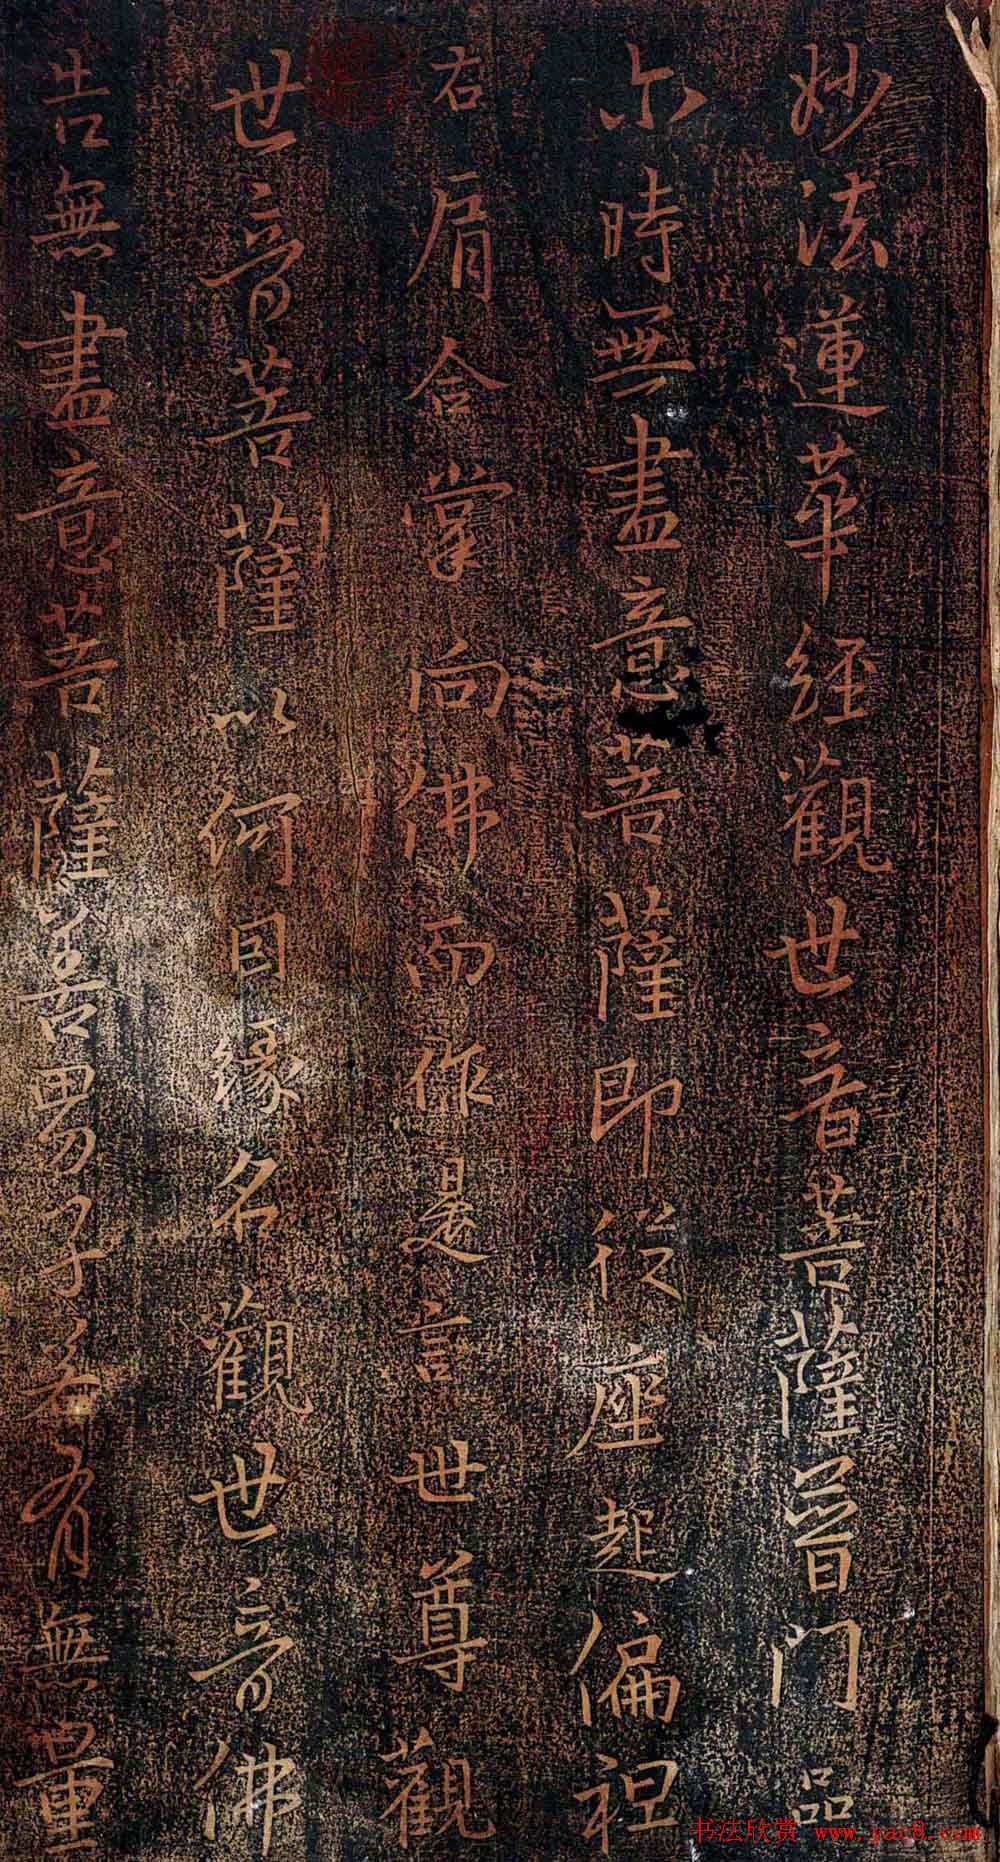 妙法蓮華經觀世音菩薩普門品
尒時無盡意菩薩即從座起偏袒
右肩合掌向佛而作是言世尊觀
世音菩薩以何因緣名觀世音佛
告無盡意菩薩善男子若有無量
书法欣赏 www.yac8.com